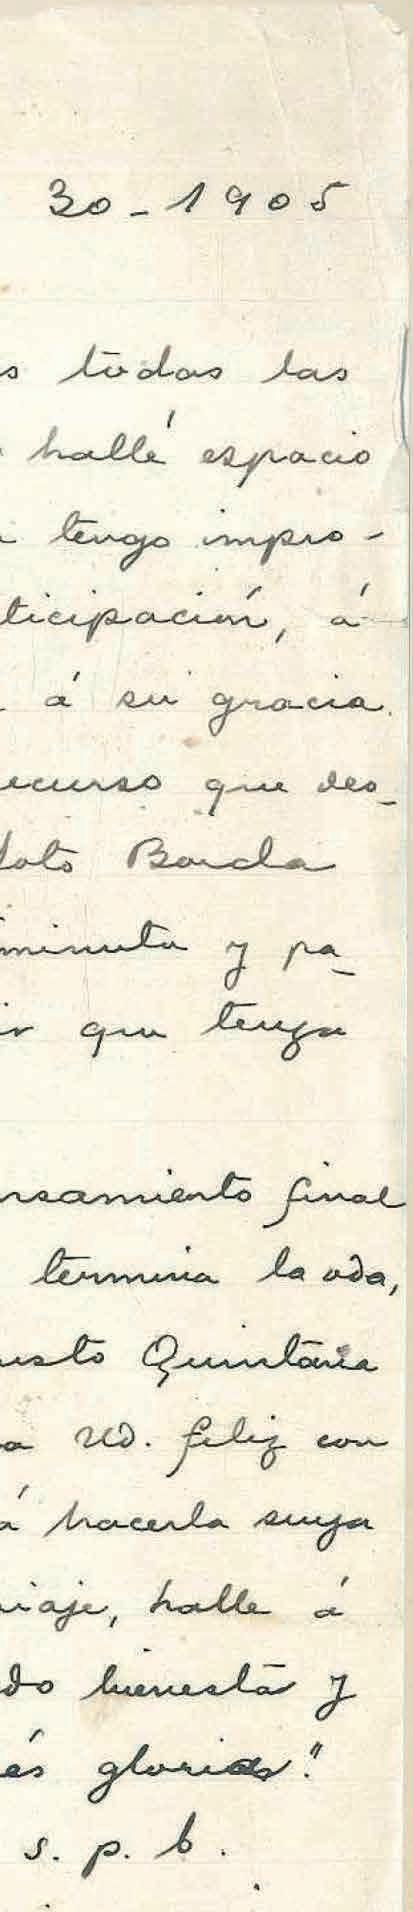 30-1905
s todas las
hallé espacio
tengo impro-
ticipación, á
á su gracia.
ecurso que des-
Banda
minuta y pa-
ir que tenga
nsamiento final
termina la oda,
usto Quintana
a Ud. feliz con
á hacerla suya
iaje, halle á
do bienestar y
és glorias."
s. p. b.